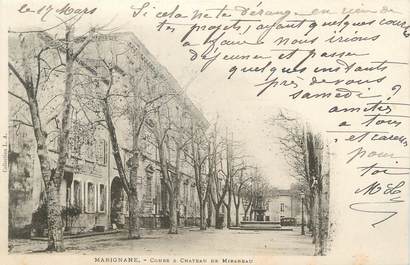 le 17 Mars
Si cela ne te dérange en rien de
tes projets, ayant quelques courses
à faire nous irions
déjeuner et passer
quelques instants
près de vous
samedi.
amitiés
à tous
et caresses
pour
toi
Collection L. A.
MARIGNANE. - COURS & CHATEAU DE MIRABEAU